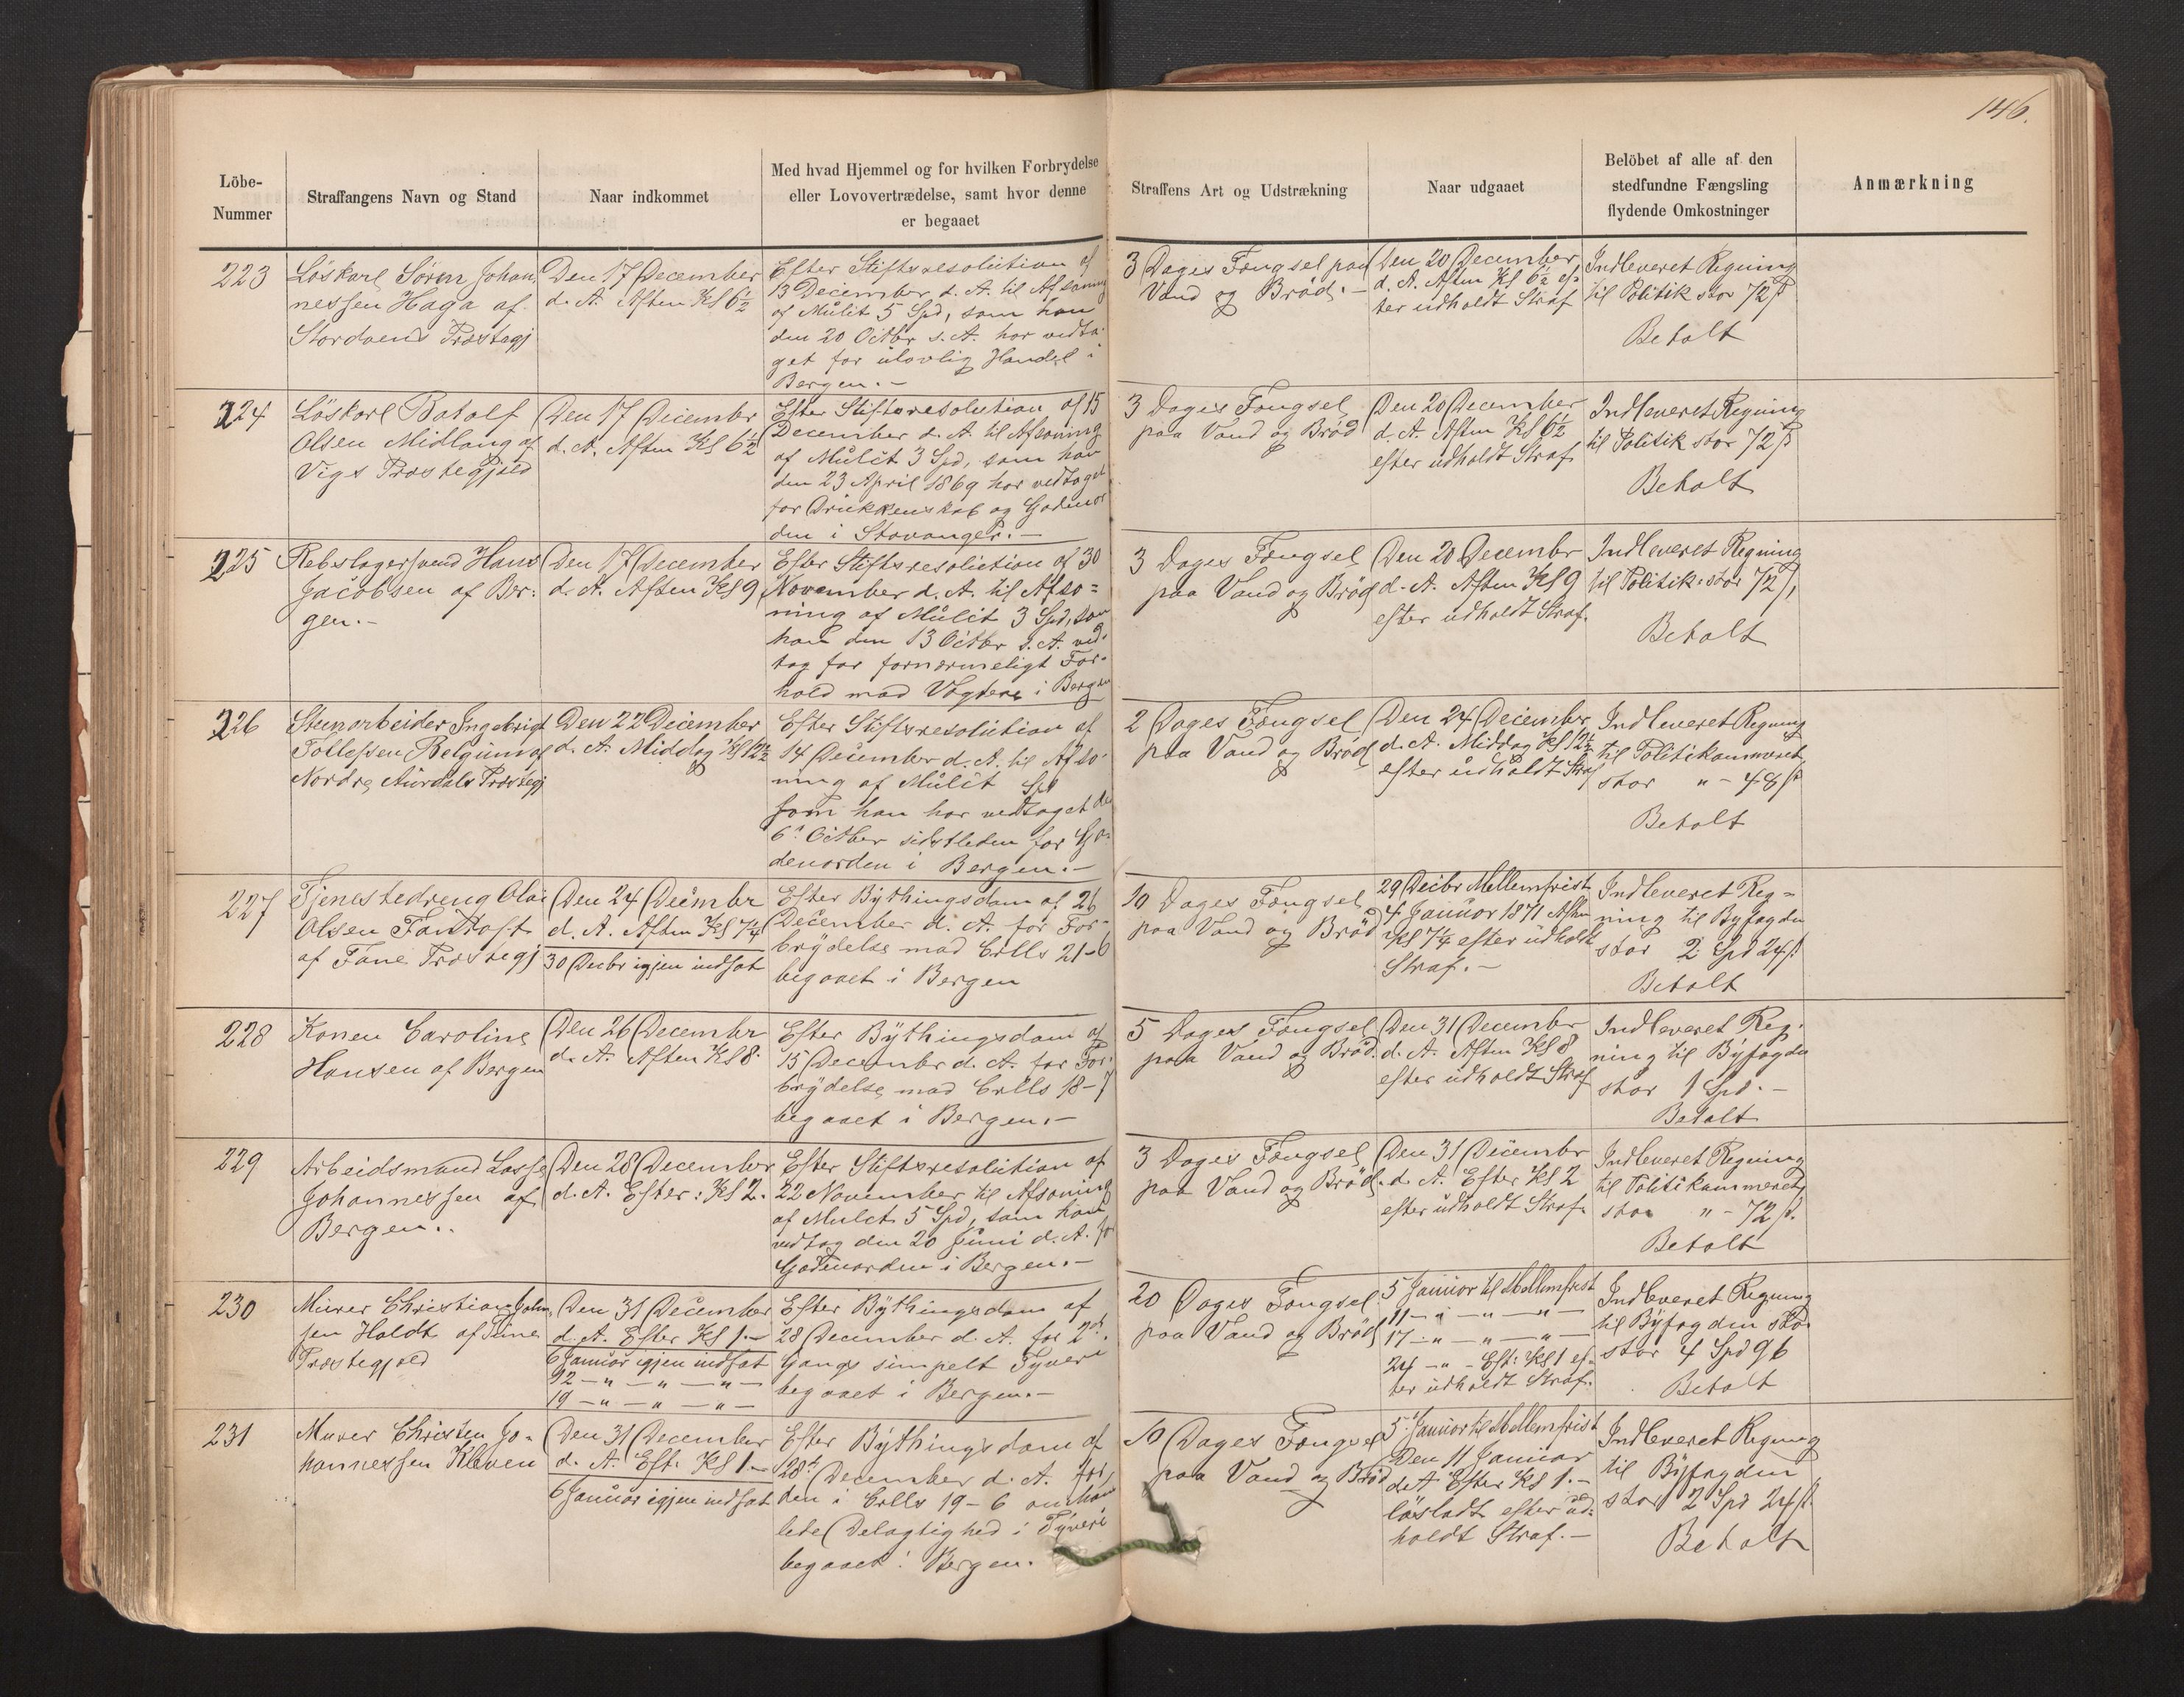 146.
Löbe-
Nummer
Straffangens Navn og Stand
Naar indkommet
Med hvad Hjemmel og for hvilken Forbrydelse
eller Lovovertrædelse, samt hvor denne
er begaaet
Straffens Art og Udstrækning
Naar udgaaet
Belöbet af alle af den
stedfundne Fængsling
flydende Omkostninger
Anmærkning
223
Löskarl Sören Johan
nessen Haga af
Stordöens Præstegj
Den 17 December
d. A. Aften Kl 6½
Efter Stiftsresolution af
13 December d. A. til Afsoning
af Mulct 5 Spd, som han
den 20 Octbr s. A. har vedta-
get for ulovlig Handel i
Bergen.-
3 Dages Fængsel paa
Vand og Bröd.-
Den 20 December
d. A. Aften Kl 6½ ef-
ter udholdt Straf
Indleveret Regning
til Politik stor 72 ß
Betalt
224
Löskarl Botolf
Olsen Midlang af
Vigs Præstegjeld
Den 17 Decembr
d. A. Aften Kl 6½
Efter Stiftsresolution af 15
December d. A. til Afsoning
af Mulct 3 Spd, som han
den 23 April 1869 har vedtaget
for Drukkenskab og Gaduor
den i Stavanger.-
3 Dages Fængsel
paa Vand og Bröd
Den 20 December
d. A. Aften Kl 6½
efter udholdt Straf
Indleveret Regning
til Politik stor 72 ß
Betalt
225
Rebslagersvend Hans
Jacobsen af Ber-
gen.-
Den 17 December
d. A. Aften Kl 9
Efter Stiftsresolution af 30
November d. A. til Afso=
ning af Mulct 3 Spd, som
han den 13 Octbr s. A. ved-
tog for fornærmeligt For-
hold mod Vægtere i Bergen
3 Dages Fængsel
paa Vand og Bröd
Den 20 Decembr
d. A. Aften Kl 9
efter udholdt Straf.
Indleveret Regning
til Politik. stor 72 ß
Betalt
226
Steenarbeider Ingebrigt
Tollefsen af
Nordre Aurdals Præstegj
Den 22 December
d. A. Middag Kl 12½
Efter Stiftsresolution af
14 December d. A. til Afso-
ning af Mulct Spd
som han har vedtaget den
6te October sidstleden for Ga-
deuorden i Bergen.-
2 Dages Fængsel
paa Vand og Bröd
Den 24 December
d. A. Middag Kl 12½
efter udholdt Straf
Indleveret Regning
til Politikammeret
stor " - 48 ß
Betalt
227
Tjenestedreng Olai
Olsen Fantoft
af Fane Præstegj
Den 24 Decembr
d. A. Aften Kl 7¼
30 Decbr igjen indsat
Efter Bythingsdom af 26
December d. A. for For-
brydelse mod Crlls 21-6
begaaet i Bergen
10 Dages Fængsel
paa Vand og Bröd
29 Decbr Mellemfrist
4 Januar 1871 Aften
Kl 7¼ efter udholdt
Straf.-
Indleveret Reg=
ning til Byfogden
stor 2 Spd 24 ß
Betalt
228
Konen Caroline
Hansen af Bergen
Den 26 Decembr
d. A. Aften Kl 8.
Efter Bythingsdom af
15 Decembr d. A. for For-
brydelse mod Crlls 18-7
begaaet i Bergen.-
5 Dages Fængsel
paa Vand og Bröd.
Den 31 Decembr
d. A. Aften Kl 8
efter udholdt Straf
Indleveret Reg-
ning til Byfogden
stor 1 Spd.-
Betalt
229
Arbeidsmand Lasse
Johannessen af
Bergen..
Den 28 December
d. A. Efter: Kl 2.
Efter Stiftsresolution af
22 November til Afsoning
af Mulct 5 Spd, som han
vedtog den 20 Juni d. A. for
Gadeuorden i Bergen.-
3 Dages Fængsel
paa Vand og Bröd.
Den 31 Decembr
d. A. Efter Kl 2
efter udholdt Straf.
Indleveret Regning
til Politikammeret
stor " - 72 ß.
Betalt
230
Murer Christian Johan
sen Holdt af
Præstegjeld
Den 31 December
d. A. Efter Kl 1.-
6 Januar igjen indsat
12 -"- -"- -"-
19 -"- -"- -"-
Efter Bythingsdom af
28 December d. A. for 2den
Gangs simpelt Tyveri
begaaet i Bergen.-
20 Dages Fængsel
paa Vand og Bröd
5 Januar til Mellemfrist
11 -"- -"- -"-
17 -"- -"- -"-
24 -"- Eft: Kl 1 ef-
ter udholdt Straf.
Indleveret Regning
til Byfogden
stor 4 Spd 96
Betalt
231
Murer Christen Jo-
hannessen Kleven
Den 31 December
d. A. Eft. Kl 1.-
6 Januar igjen indsat
Efter Bythingsdom af
28de December d. A. for
den i Crlls 19-6 omhand
lede Delagtighed i Tyveri
begaaet i Bergen.
10 Dages Fængsel
paa Vand og Bröd
5 Januar til Mellemfrist
Den 11 Januar
d. A Efter Kl 1.-
lösladt efter ud-
holdt Straf.-
Indleveret Regning
til Byfogden
stor 2 Spd 24 ß.
Betalt